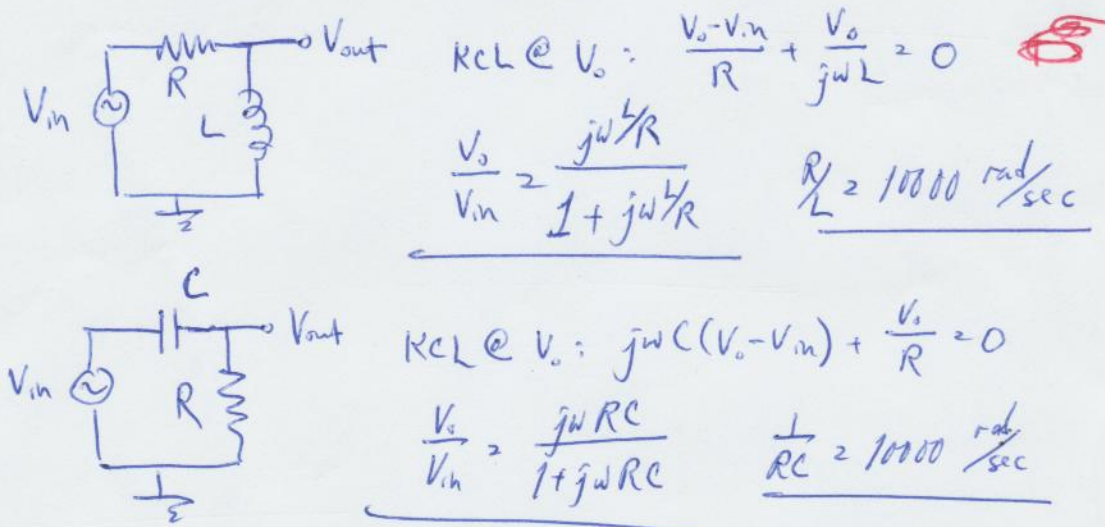 V_out
R
V_in
L
KCL @ V_o : (V_o - V_in)/R + V_o/(jωL) = 0
V_o/V_in = (jωL/R)/(1 + jωL/R)
R/L = 10000 rad/sec
C
V_out
V_in
R
KCL @ V_o : jωC(V_o - V_in) + V_o/R = 0
V_o/V_in = jωRC/(1 + jωRC)
1/RC = 10000 rad/sec